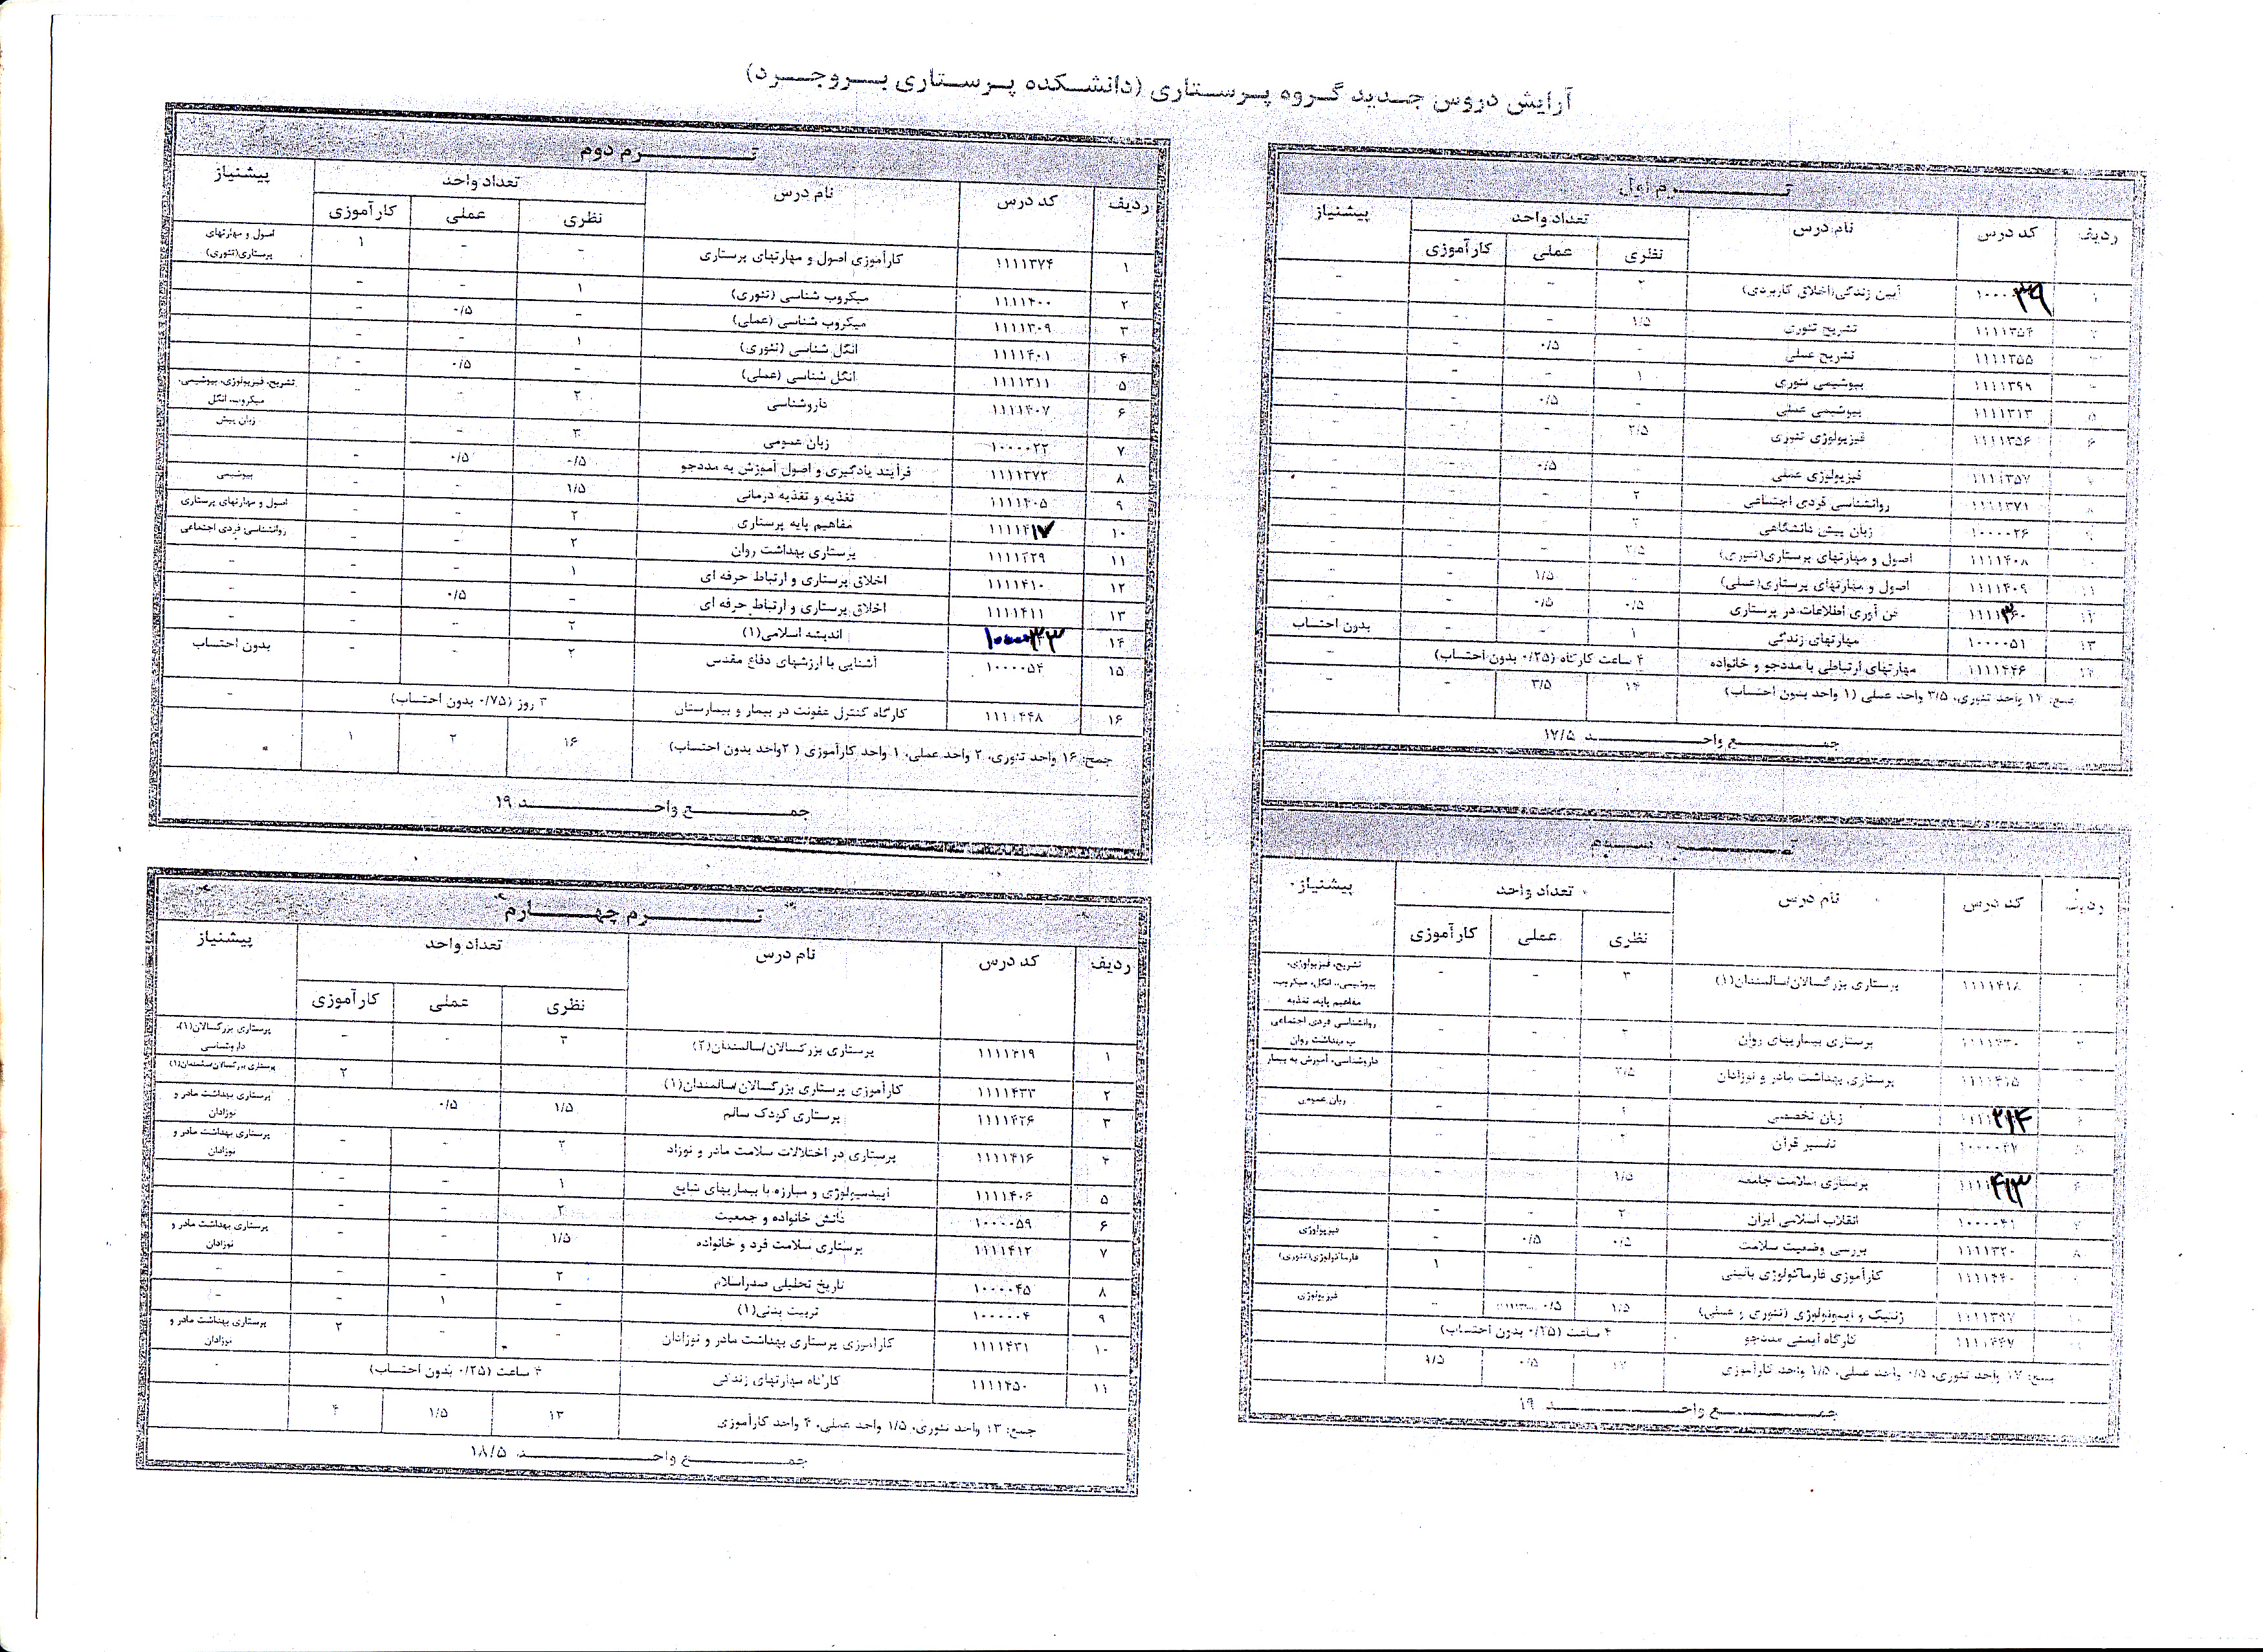 آرایش دروس جدید گروه پرستاری (دانشکده پرستاری بروجرد)
ترم اول
ردیف کد درس نام درس تعداد واحد پیشنیاز
نظری عملی کارآموزی
آیین زندگی(اخلاق کاربردی) ۲ - - -
۱۱۱۱۳۵۴ تشریح تئوری ۱/۵ - - -
۱۱۱۱۳۵۵ تشریح عملی - ۰/۵ - -
۱۱۱۱۳۹۹ بیوشیمی تئوری ۱ - - -
۵ ۱۱۱۱۳۱۳ بیوشیمی عملی - ۰/۵ - -
۶ ۱۱۱۱۳۵۶ فیزیولوژی تئوری ۲/۵ - - -
۱۱۱۱۳۵۷ فیزیولوژی عملی - ۰/۵ - -
۸ ۱۱۱۱۳۷۱ روانشناسی فردی اجتماعی ۲ - - -
۱۰۰۰۰۲۶ زبان پیش دانشگاهی ۲ - - -
۱۱۱۱۴۰۸ اصول و مهارتهای پرستاری(تئوری) ۲/۵ - - -
۱۱ ۱۱۱۱۴۰۹ اصول و مهارتهای پرستاری(عملی) - ۱/۵ - -
۱۲ فن آوری اطلاعات در پرستاری ۰/۵ ۰/۵ - -
۱۳ ۱۰۰۰۰۵۱ مهارتهای زندگی ۱ - - بدون احتساب
۱۱۱۱۴۴۶ مهارتهای ارتباطی با مددجو و خانواده ۴ ساعت کارگاه (۰/۲۵ بدون احتساب) -
جمع: ۱۴ واحد تئوری، ۳/۵ واحد عملی (۱ واحد بدون احتساب) ۱۴ ۳/۵ - -
جمع واحد ۱۷/۵
ترم دوم
ردیف کد درس نام درس تعداد واحد پیشنیاز
نظری عملی کارآموزی
۱ ۱۱۱۱۳۷۴ کارآموزی اصول و مهارتهای پرستاری - - ۱ اصول و مهارتهای پرستاری(تئوری)
۲ ۱۱۱۱۴۰۰ میکروب شناسی (تئوری) ۱ - -
۳ ۱۱۱۱۳۰۹ میکروب شناسی (عملی) - ۰/۵ -
۴ ۱۱۱۱۴۰۱ انگل شناسی (تئوری) ۱ - -
۵ ۱۱۱۱۳۱۱ انگل شناسی (عملی) - ۰/۵ -
۶ ۱۱۱۱۴۰۷ داروشناسی ۲ - - تشریح، فیزیولوژی، بیوشیمی، میکروب، انگل
۷ ۱۰۰۰۰۲۲ زبان عمومی ۳ - - زبان پیش
۸ ۱۱۱۱۳۷۲ فرآیند یادگیری و اصول آموزش به مددجو ۰/۵ ۰/۵ -
۹ ۱۱۱۱۴۰۵ تغذیه و تغذیه درمانی ۱/۵ - - بیوشیمی
۱۰ ۱۱۱۱۴۱۷ مفاهیم پایه پرستاری ۲ - - اصول و مهارتهای پرستاری
۱۱ ۱۱۱۱۴۲۹ پرستاری بهداشت روان ۲ - - روانشناسی فردی اجتماعی
۱۲ ۱۱۱۱۴۱۰ اخلاق پرستاری و ارتباط حرفه ای ۱ - - -
۱۳ ۱۱۱۱۴۱۱ اخلاق پرستاری و ارتباط حرفه ای - ۰/۵ - -
۱۴ ۱۰۰۰۰۳۳ اندیشه اسلامی(۱) ۲ - - -
۱۵ ۱۰۰۰۰۵۴ آشنایی با ارزشهای دفاع مقدس ۲ - - بدون احتساب
۱۶ ۱۱۱۰۴۴۸ کارگاه کنترل عفونت در بیمار و بیمارستان ۳ روز (۰/۷۵ بدون احتساب) -
جمع: ۱۶ واحد تئوری، ۲ واحد عملی، ۱ واحد کارآموزی (۲واحد بدون احتساب) ۱۶ ۲ ۱
جمع واحد ۱۹
ترم سوم
ردیف کد درس نام درس تعداد واحد پیشنیاز
نظری عملی کارآموزی
۱۱۱۱۴۱۸ پرستاری بزرگسالان/سالمندان(۱) ۳ - - تشریح، فیزیولوژی، بیوشیمی، انگل، میکروب، مفاهیم پایه، تغذیه
۱۱۱۱۴۳۰ پرستاری بیماریهای روان ۲ - - روانشناسی فردی اجتماعی ب بهداشت روان
۱۱۱۱۴۱۵ پرستاری بهداشت مادر و نوزادان - - داروشناسی، آموزش به بیمار
زبان تخصصی - - زبان عمومی
۱۰۰۰۰۴۷ تفسیر قرآن ۲ - -
پرستاری سلامت جامعه ۱/۵ - -
۱۰۰۰۰۴۱ انقلاب اسلامی ایران ۲ - -
۸ ۱۱۱۱۳۲۰ بررسی وضعیت سلامت ۰/۵ ۰/۵ - فیزیولوژی
۱۱۱۱۴۴۰ کارآموزی فارماکولوژی بالینی - ۱ فارماکولوژی(تئوری)
۱۱۱۱۳۹۷ ژنتیک و ایمونولوژی (تئوری و عملی) ۱/۵ ۰/۵ - فیزیولوژی
۱۱۱۰۴۴۷ کارگاه ایمنی مددجو ۴ ساعت (۰/۲۵ بدون احتساب)
جمع: ۱۷ واحد تئوری، ۰/۵ واحد عملی، ۱/۵ واحد کارآموزی ۱۷ ۰/۵ ۱/۵
جمع واحد ۱۹
ترم چهارم
ردیف کد درس نام درس تعداد واحد پیشنیاز
نظری عملی کارآموزی
۱ ۱۱۱۱۴۱۹ پرستاری بزرگسالان/سالمندان(۲) ۳ - - پرستاری بزرگسالان(۱)، داروشناسی
۲ ۱۱۱۱۴۳۳ کارآموزی پرستاری بزرگسالان/سالمندان(۱) ۲ پرستاری بزرگسالان/سالمندان(۱)
۳ ۱۱۱۱۴۲۶ پرستاری کودک سالم ۱/۵ ۰/۵ پرستاری بهداشت مادر و نوزادان
۴ ۱۱۱۱۴۱۶ پرستاری در اختلالات سلامت مادر و نوزاد ۲ - - پرستاری بهداشت مادر و نوزادان
۵ ۱۱۱۱۴۰۶ اپیدمیولوژی و مبارزه با بیماریهای شایع ۱ - -
۶ ۱۰۰۰۰۵۹ دانش خانواده و جمعیت ۲ - -
۷ ۱۱۱۱۴۱۲ پرستاری سلامت فرد و خانواده ۱/۵ - - پرستاری بهداشت مادر و نوزادان
۸ ۱۰۰۰۰۴۵ تاریخ تحلیلی صدراسلام ۲ - - -
۹ ۱۰۰۰۰۰۴ تربیت بدنی(۱) - ۱ - -
۱۰ ۱۱۱۱۴۳۱ کارآموزی پرستاری بهداشت مادر و نوزادان - - ۲ پرستاری بهداشت مادر و نوزادان
۱۱ ۱۱۱۱۴۵۰ کارگاه مهارتهای زندگی ۴ ساعت (۰/۲۵ بدون احتساب) -
جمع: ۱۳ واحد تئوری، ۱/۵ واحد عملی، ۴ واحد کارآموزی ۱۳ ۱/۵ ۴
جمع واحد ۱۸/۵